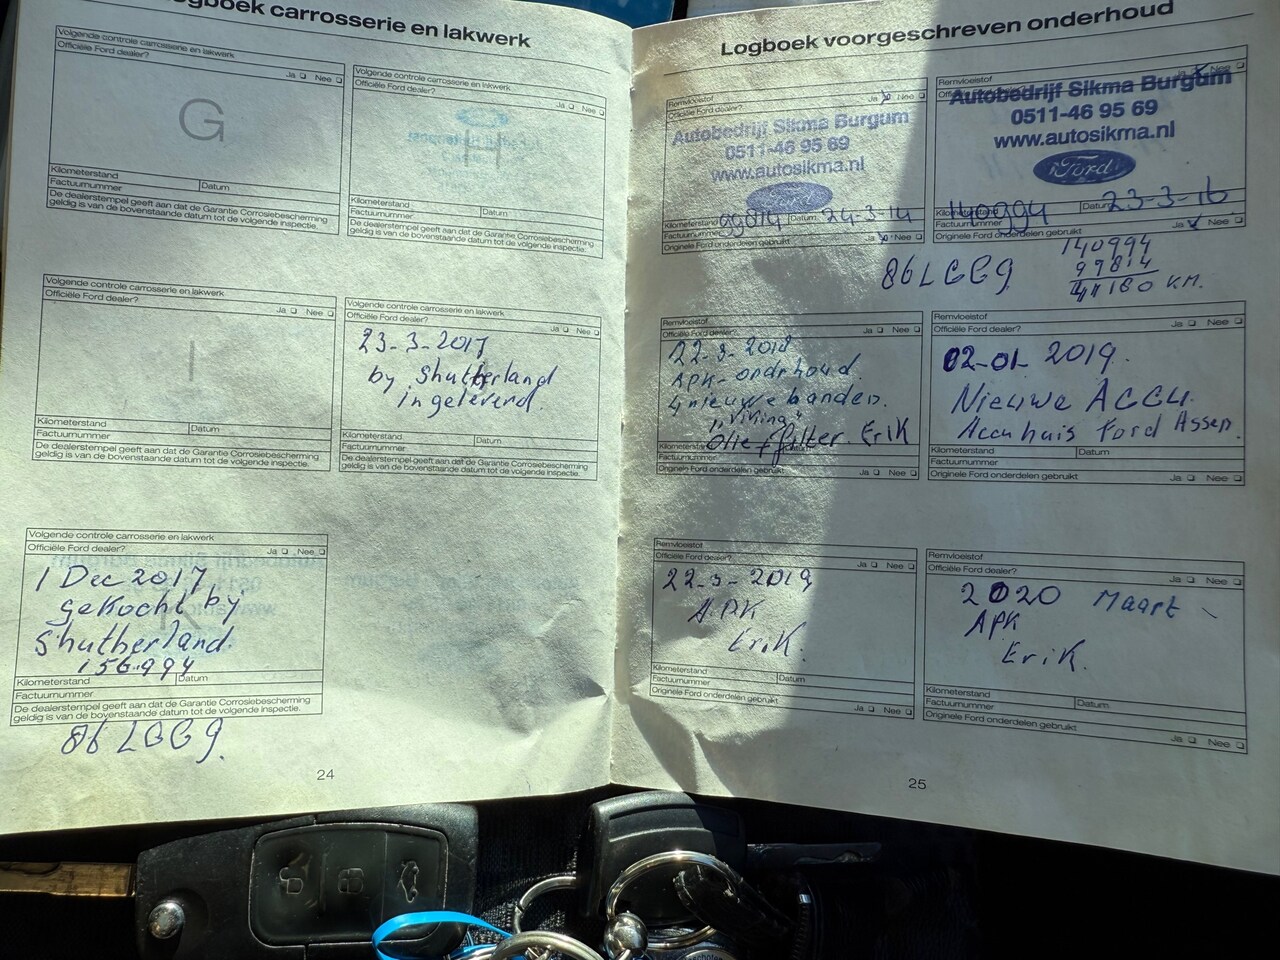 Logboek carrosserie en lakwerk
Volgende controle carrosserie en lakwerk
Officiële Ford dealer?
Ja Nee
G
Kilometerstand
Factuurnummer Datum
De dealerstempel geeft aan dat de Garantie Corrosiebescherming
geldig is van de bovenstaande datum tot de volgende inspectie.
Volgende controle carrosserie en lakwerk
Officiële Ford dealer?
Ja Nee
H
Kilometerstand
Factuurnummer Datum
De dealerstempel geeft aan dat de Garantie Corrosiebescherming
geldig is van de bovenstaande datum tot de volgende inspectie.
Volgende controle carrosserie en lakwerk
Officiële Ford dealer?
Ja Nee
I
Kilometerstand
Factuurnummer Datum
De dealerstempel geeft aan dat de Garantie Corrosiebescherming
geldig is van de bovenstaande datum tot de volgende inspectie.
Volgende controle carrosserie en lakwerk
Officiële Ford dealer?
Ja Nee
23-3-2017
by Shutherland
ingeleverd.
Kilometerstand
Factuurnummer Datum
De dealerstempel geeft aan dat de Garantie Corrosiebescherming
geldig is van de bovenstaande datum tot de volgende inspectie.
Volgende controle carrosserie en lakwerk
Officiële Ford dealer?
Ja Nee
1 Dec 2017
gekocht by
Shutherland.
156.994
Kilometerstand Datum
Factuurnummer
De dealerstempel geeft aan dat de Garantie Corrosiebescherming
geldig is van de bovenstaande datum tot de volgende inspectie.
86LGG9.
24
Logboek voorgeschreven onderhoud
Remvloeistof
Ja Nee
Officiële Ford dealer?
Autobedrijf Sikma Burgum
0511-46 95 69
www.autosikma.nl
Ford
Kilometerstand 99814 Datum 24-3-14
Factuurnummer
Originele Ford onderdelen gebruikt Ja Nee
Nee
Autobedrijf Sikma Burgum
0511-46 95 69
www.autosikma.nl
Ford
Kilometerstand 140994 Datum 23-3-16
Factuurnummer
Originele Ford onderdelen gebruikt Ja Nee
86LGG9
140994
99814
41180 K.M.
Remvloeistof
Officiële Ford dealer?
Ja Nee
22-3-2018
APK-onderhoud.
4 nieuwe banden.
"Viking"
Olie + filter. Erik
Kilometerstand
Factuurnummer
Originele Ford onderdelen gebruikt Ja Nee
Remvloeistof
Officiële Ford dealer?
Ja Nee
02-01-2019.
Nieuwe ACCU.
Accuhuis Ford Assen.
Kilometerstand
Factuurnummer Datum
Originele Ford onderdelen gebruikt Ja Nee
Remvloeistof
Officiële Ford dealer?
Ja Nee
22-3-2019
A.P.K
Erik.
Kilometerstand
Factuurnummer Datum
Originele Ford onderdelen gebruikt
Ja Nee
Remvloeistof
Officiële Ford dealer?
Ja Nee
2020 Maart
APK
Erik.
Kilometerstand
Factuurnummer Datum
Originele Ford onderdelen gebruikt
Ja Nee
25